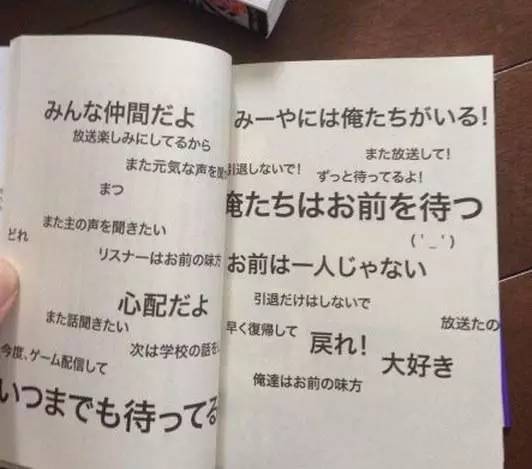 みんな仲間だよ
放送楽しみにしてるから
また元気な声を聞
まつ
また主の声を聞きたい
どれ
リスナーはお前の味方
心配だよ
また話聞きたい
次は学校の話を
今度、ゲーム配信して
いつまでも待ってる
みーやには俺たちがいる!
また放送して!
引退しないで!
ずっと待ってるよ!
俺たちはお前を待つ
( ' _ ' )
お前は一人じゃない
引退だけはしないで
放送たの
早く復帰して
戻れ!
大好き
俺達はお前の味方